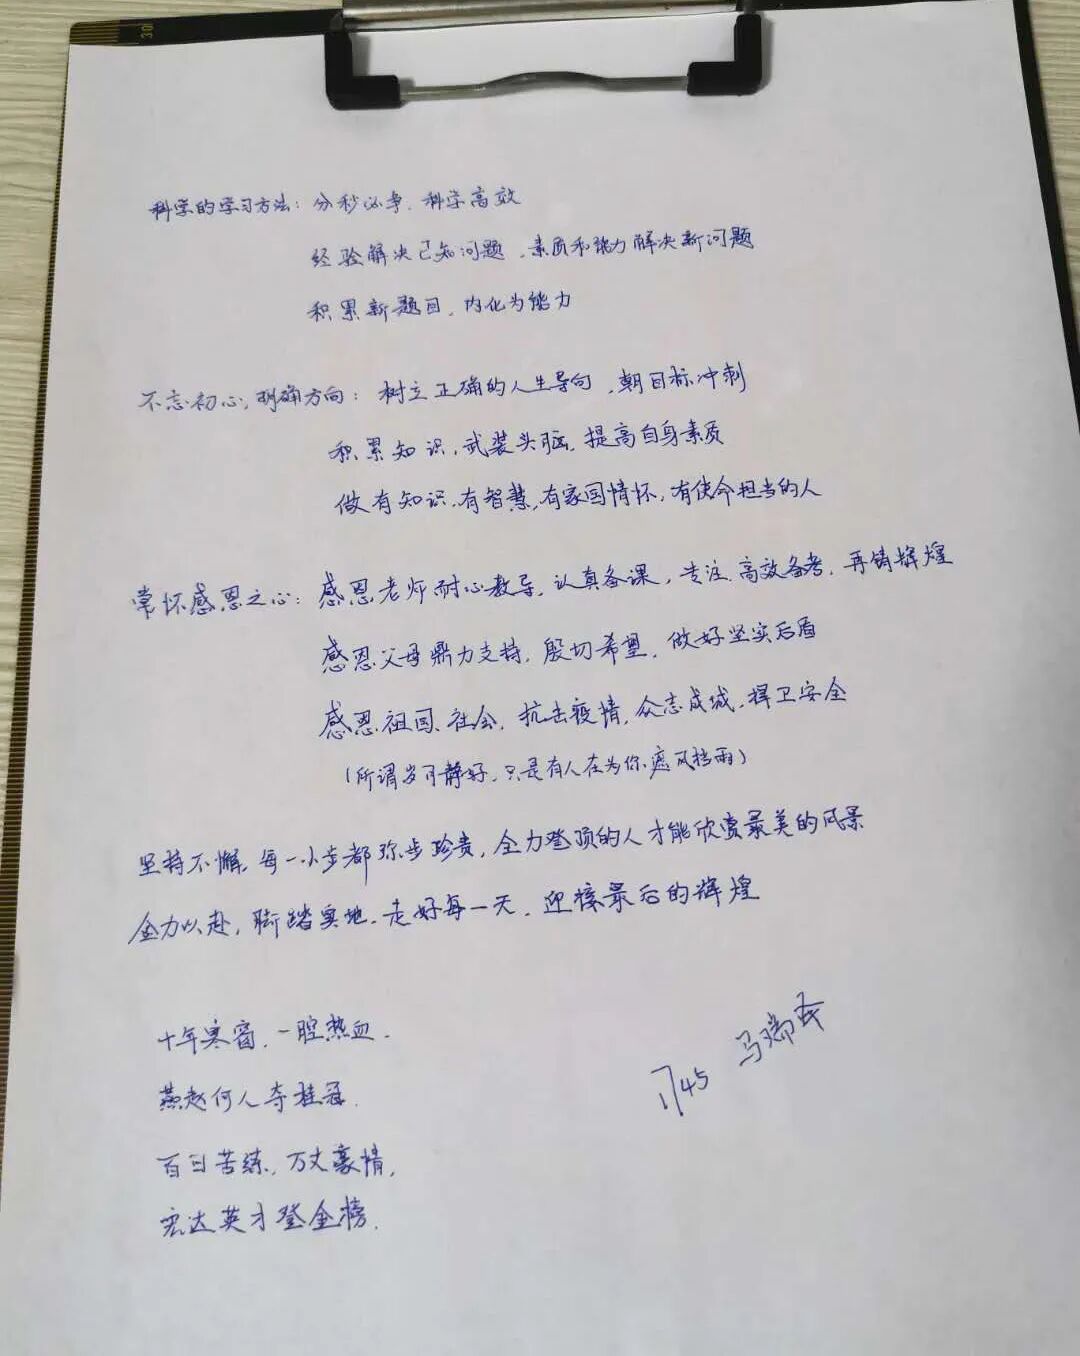 30
科学的学习方法：分秒必争、科学高效
经验解决已知问题、素质和能力解决新问题
积累新题目、内化为能力
不忘初心，明确方向：树立正确的人生导向、朝目标冲刺
积累知识，武装头脑，提高自身素质
做有知识，有智慧，有家国情怀，有使命担当的人
常怀感恩之心：感恩老师耐心教导，认真备课，专注、高效备考，再铸辉煌
感恩父母鼎力支持，殷切希望，做好坚实后盾
感恩祖国、社会，抗击疫情，众志成城，捍卫安全
（所谓岁月静好，只是有人在为你遮风挡雨）
坚持不懈，每一小步都弥步珍贵，全力登顶的人才能欣赏最美的风景
全力以赴，脚踏实地，走好每一天，迎接最后的辉煌
十年寒窗，一腔热血．
燕赵何人夺桂冠．
百日苦练，万丈豪情，
宏达英才登金榜．
1745 马瑞